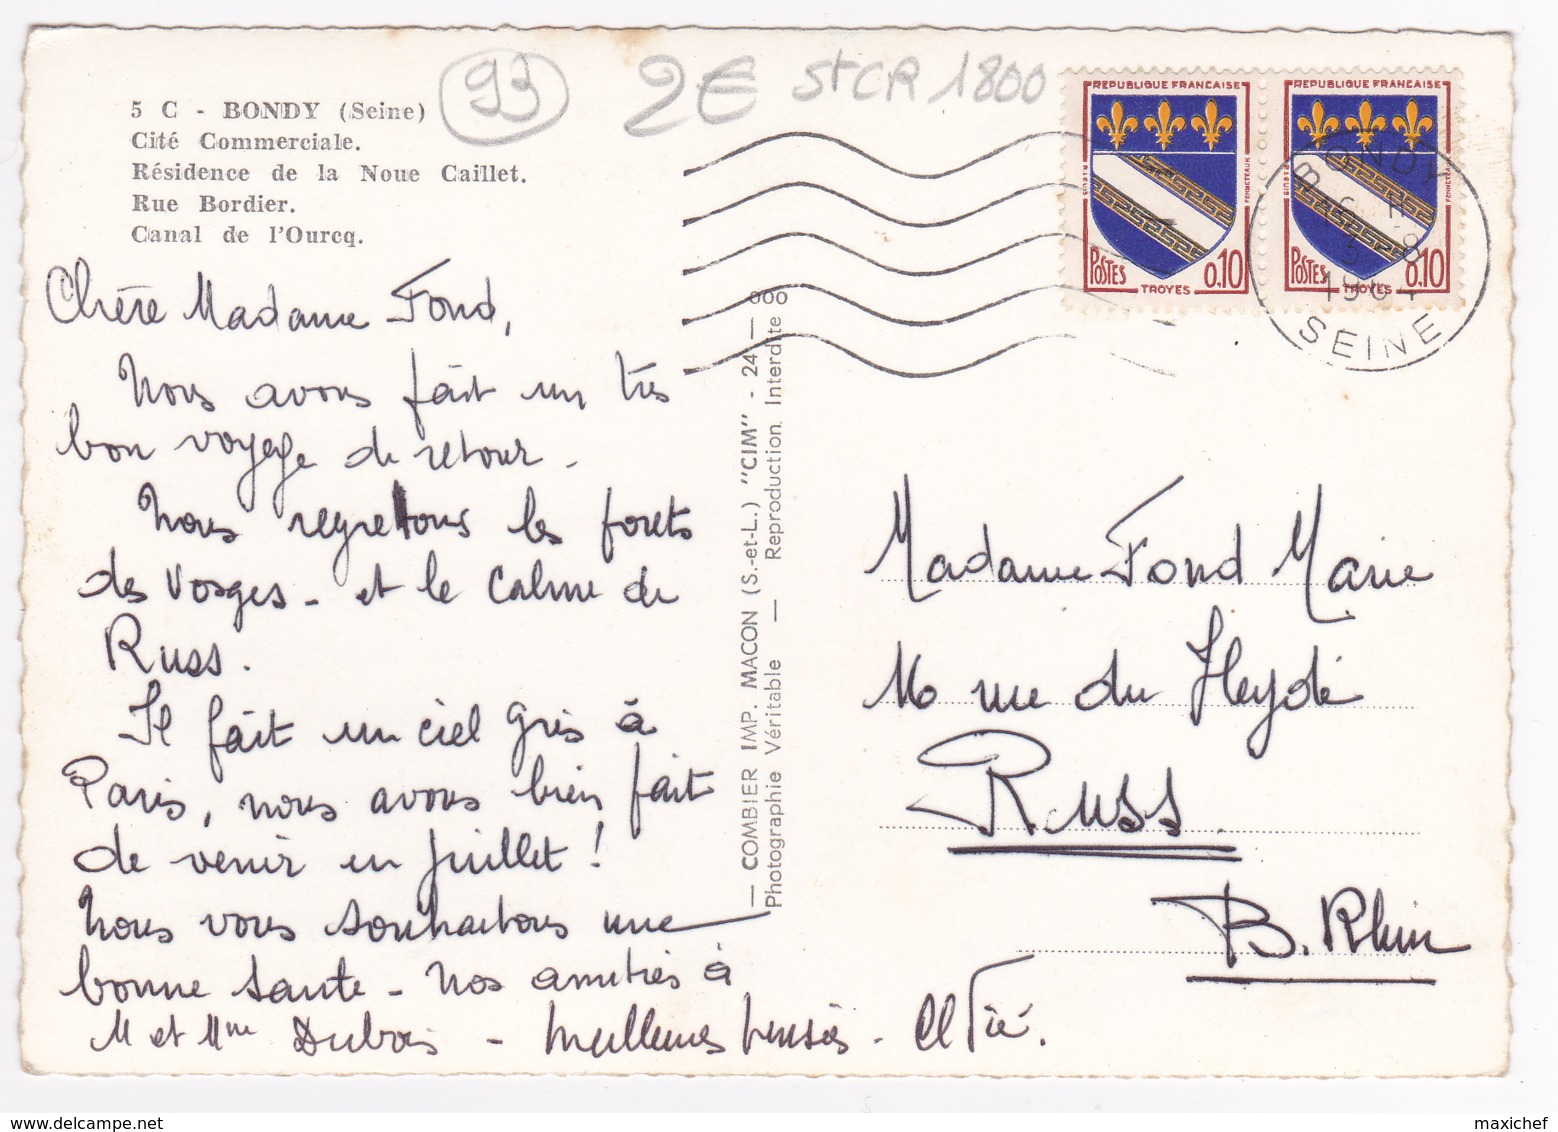 93
2€
St CR 1800
5 C - BONDY (Seine)
Cité Commerciale.
Résidence de la Noue Caillet.
Rue Bordier.
Canal de l'Ourcq.
REPUBLIQUE FRANCAISE
POSTES
0,10
TROYES
REPUBLIQUE FRANCAISE
POSTES
0,10
TROYES
BONDY
1964
SEINE
Chère Madame Fond,
Nous avons fait un très
bon voyage de retour.
Nous regrettons les forets
des Vosges - et le calme de
Russ.
Il fait un ciel gris à
Paris, nous avons bien fait
de venir en juillet !
Nous vous souhaitons une
bonne santé - Nos amitiés à
M et Mme Dubois - Meilleures pensées -
— COMBIER IMP. MACON (S.-et-L.) "CIM" - 24 — 000
Photographie Véritable — Reproduction Interdite
Madame Fond Marie
16 rue du Heydé
Russ
B. Rhin
maxichef